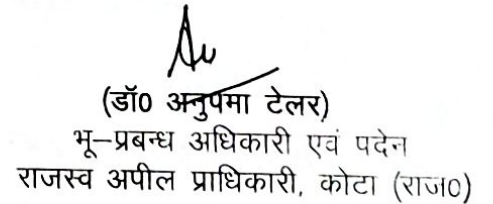 (डॉ0 अनुपमा टेलर)
भू-प्रबन्ध अधिकारी एवं पदेन
राजस्व अपील प्राधिकारी, कोटा (राज0)